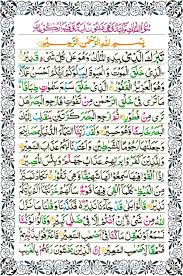 بِسْمِ اللهِ الرَّحْمٰنِ الرَّحِيْمِ
تَبٰرَكَ الَّذِيْ بِيَدِهِ الْمُلْكُ وَهُوَ عَلٰى كُلِّ شَيْءٍ قَدِيْرُ
الَّذِيْ خَلَقَ الْمَوْتَ وَالْحَيٰوةَ لِيَبْلُوَكُمْ اَيُّكُمْ اَحْسَنُ عَمَلًا
وَهُوَ الْعَزِيْزُ الْغَفُوْرُ الَّذِيْ خَلَقَ سَبْعَ سَمٰوٰتٍ طِبَاقًا
مَا تَرٰى فِيْ خَلْقِ الرَّحْمٰنِ مِنْ تَفٰوُتٍ فَارْجِعِ الْبَصَرَ هَلْ
تَرٰى مِنْ فُطُوْرٍ ثُمَّ ارْجِعِ الْبَصَرَ كَرَّتَيْنِ يَنْقَلِبْ اِلَيْكَ الْبَصَرُ
خَاسِئًا وَّهُوَ حَسِيْرٌ وَلَقَدْ زَيَّنَّا السَّمَاءَ الدُّنْيَا بِمَصَابِيْحَ
وَجَعَلْنٰهَا رُجُوْمًا لِّلشَّيٰطِيْنِ وَاَعْتَدْنَا لَهُمْ عَذَابَ السَّعِيْرِ
وَلِلَّذِيْنَ كَفَرُوْا بِرَبِّهِمْ عَذَابُ جَهَنَّمَ وَبِئْسَ الْمَصِيْرُ اِذَا اُلْقُوْا
فِيْهَا سَمِعُوْا لَهَا شَهِيْقًا وَّهِيَ تَفُوْرُ تَكَادُ تَمَيَّزُ مِنَ الْغَيْظِ كُلَّمَا
اُلْقِيَ فِيْهَا فَوْجٌ سَاَلَهُمْ خَزَنَتُهَا اَلَمْ يَاْتِكُمْ نَذِيْرٌ قَالُوْا بَلٰى
قَدْ جَاءَنَا نَذِيْرٌ فَكَذَّبْنَا وَقُلْنَا مَا نَزَّلَ اللهُ مِنْ شَيْءٍ اِنْ اَنْتُمْ
اِلَّا فِيْ ضَلٰلٍ كَبِيْرٍ وَقَالُوْا لَوْ كُنَّا نَسْمَعُ اَوْ نَعْقِلُ مَا كُنَّا
فِيْ اَصْحٰبِ السَّعِيْرِ فَاعْتَرَفُوْا بِذَنْبِهِمْ
فَسُحْقًا لِّاَصْحٰبِ السَّعِيْرِ اِنَّ الَّذِيْنَ يَخْشَوْنَ رَبَّهُمْ بِالْغَيْبِ